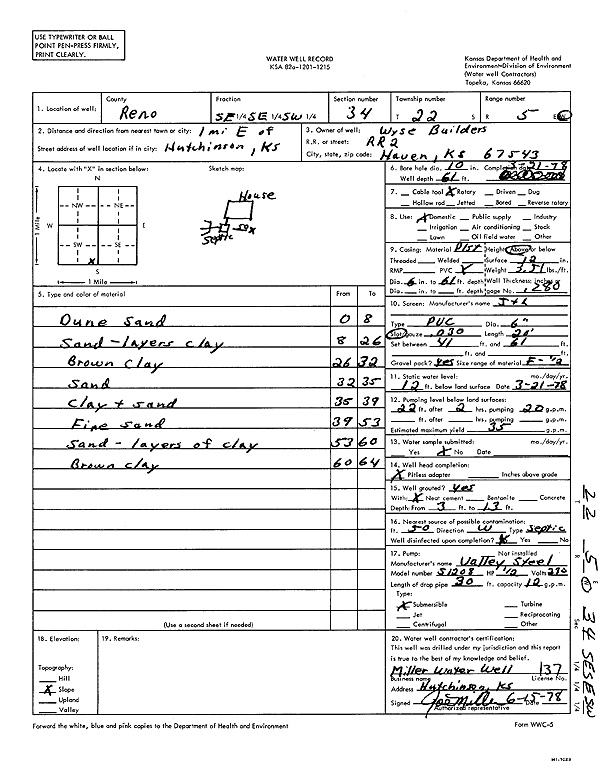 USE TYPEWRITER OR BALL
POINT PEN-PRESS FIRMLY,
PRINT CLEARLY.
WATER WELL RECORD
KSA 82a-1201-1215
Kansas Department of Health and
Environment-Division of Environment
(Water well Contractors)
Topeka, Kansas 66620
1. Location of well:
County
Reno
Fraction
SE 1/4 SE 1/4 SW 1/4
Section number
34
Township number
T 22 S
Range number
R 5 E/W
2. Distance and direction from nearest town or city: 1 mi E of
Street address of well location if in city: Hutchinson, Ks
3. Owner of well: Wyse Builders
R.R. or street: RR2
City, state, zip code: Haven, Ks 67543
4. Locate with "X" in section below:
N
NW NE
W E
SW SE
X
S
1 Mile
1 Mile
Sketch map:
House
50x
septic
5. Type and color of material From To
Dune Sand 0 8
Sand-layers clay 8 26
Brown Clay 26 32
Sand 32 35
Clay + sand 35 39
Fine Sand 39 53
Sand - layers of clay 53 60
Brown clay 60 64
(Use a second sheet if needed)
6. Bore hole dia. 10 in. Completion date 3-21-78
Well depth 61 ft.
7. Cable tool X Rotary Driven Dug
Hollow rod Jetted Bored Reverse rotary
8. Use: X Domestic Public supply Industry
Irrigation Air conditioning Stock
Lawn Oil field water Other
9. Casing: Material Plst Height: Above or below
Threaded Welded Surface 12 in.
RMP PVC X Weight 3.51 lbs./ft.
Dia. 6 in. to 61 ft. depth Wall Thickness: inches or
Dia. in. to ft. depth gage No. .280
10. Screen: Manufacturer's name
Type PVC Dia. 6"
Slot/gauze .030 Length 20'
Set between 41 ft. and 61 ft.
ft. and ft.
Gravel pack? yes Size range of material F-1/2
11. Static water level: mo./day/yr.
12 ft. below land surface Date 3-21-78
12. Pumping level below land surfaces:
22 ft. after 2 hrs. pumping 20 g.p.m.
ft. after hrs. pumping g.p.m.
Estimated maximum yield 35 g.p.m.
13. Water sample submitted: mo./day/yr.
Yes X No Date
14. Well head completion:
X Pitless adapter Inches above grade
15. Well grouted? yes
With: X Neat cement Bentonite Concrete
Depth: From 3 ft. to 13 ft.
16. Nearest source of possible contamination:
ft. 50 Direction W Type septic
Well disinfected upon completion? X Yes No
17. Pump: Not installed
Manufacturer's name Valley Steel
Model number S1208 HP 1/2 Volts 230
Length of drop pipe 30 ft. capacity 12 g.p.m.
Type:
X Submersible Turbine
Jet Reciprocating
Centrifugal Other
18. Elevation:
Topography:
Hill
X Slope
Upland
Valley
19. Remarks:
20. Water well contractor's certification:
This well was drilled under my jurisdiction and this report
is true to the best of my knowledge and belief.
Miller Water Well 137
Business name License No.
Address Hutchinson, Ks
Signed Joe Miller 6-15-78
Authorized representative Date
T 22 R 5 E W Sec 34 SE SE SW 1/4 1/4 1/4
Forward the white, blue and pink copies to the Department of Health and Environment
Form WWC-5